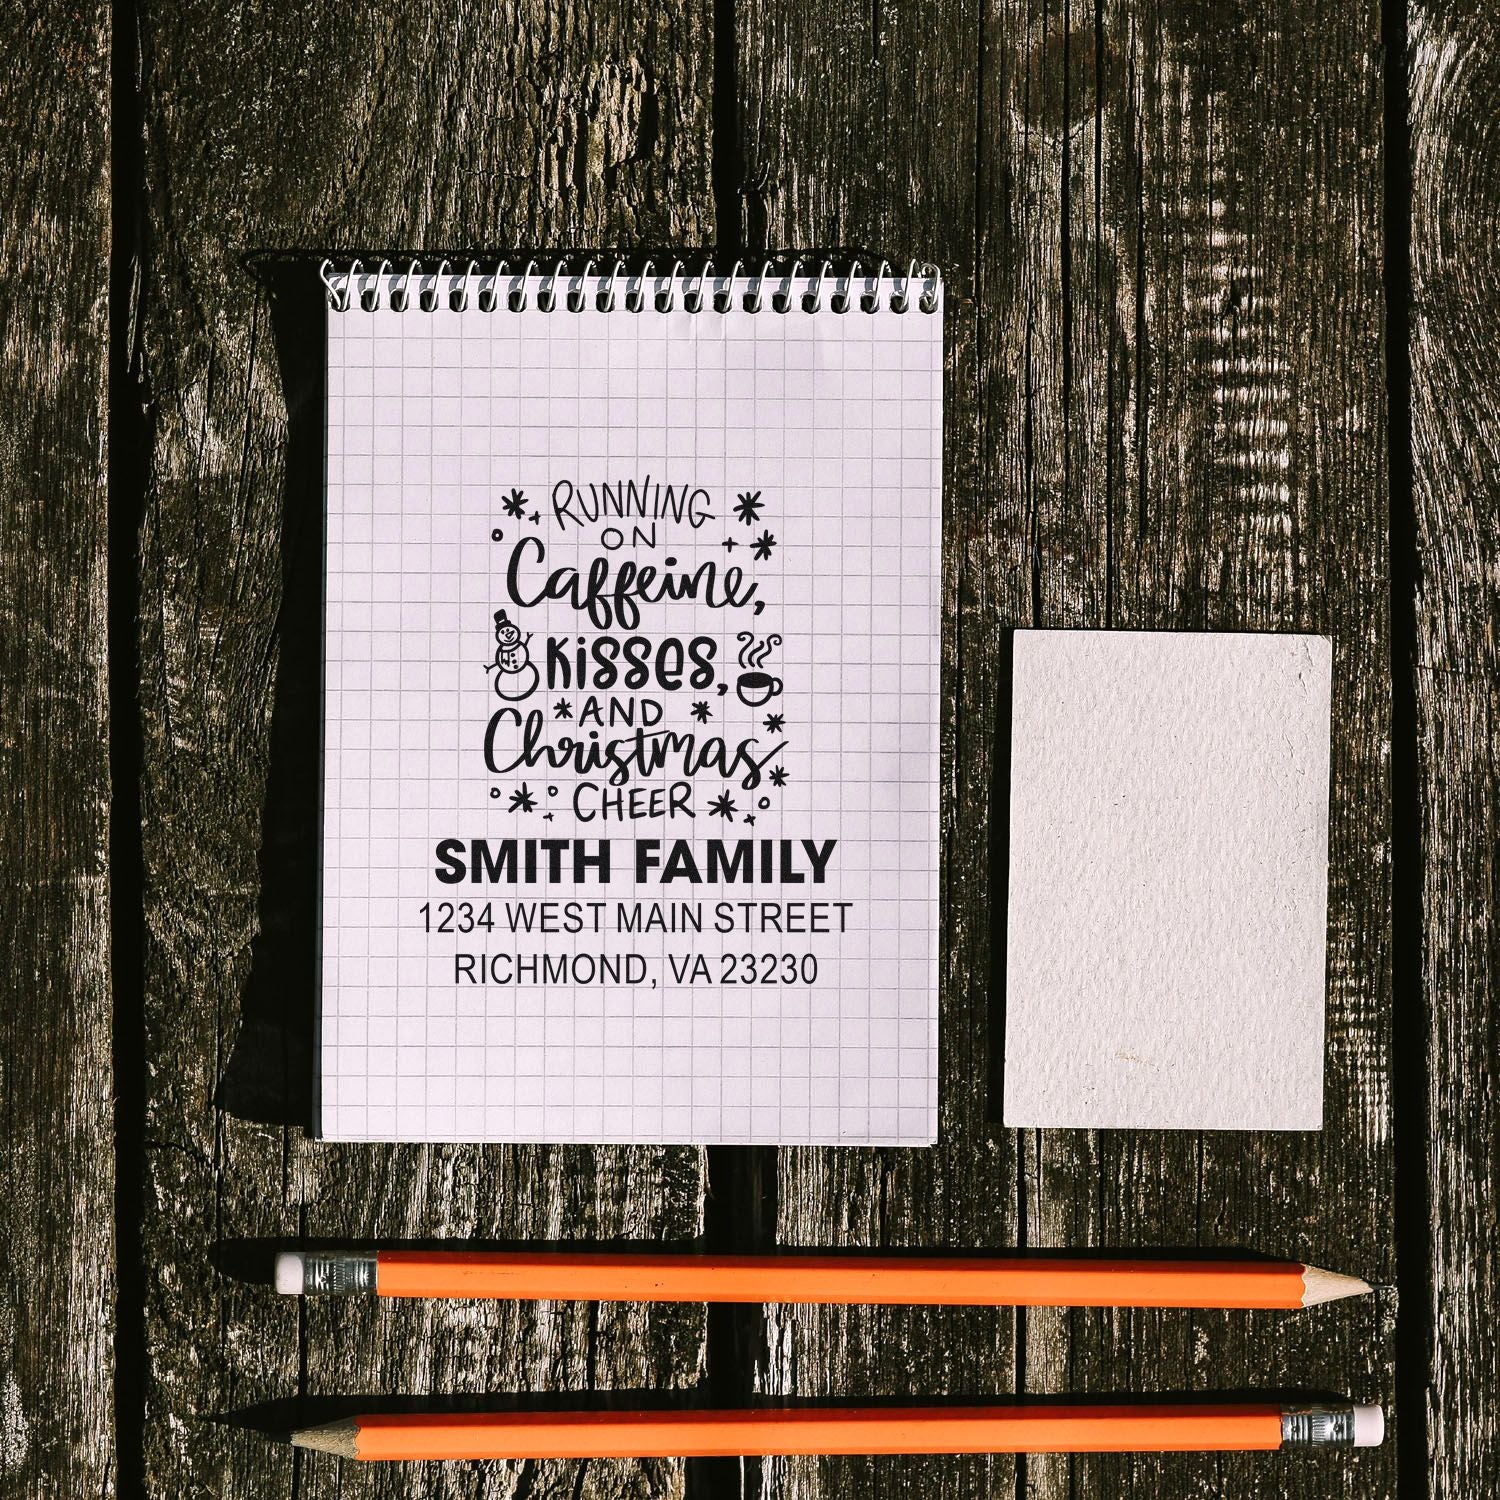 RUNNING
ON
Caffeine,
Kisses,
AND
Christmas
CHEER
SMITH FAMILY
1234 WEST MAIN STREET
RICHMOND, VA 23230